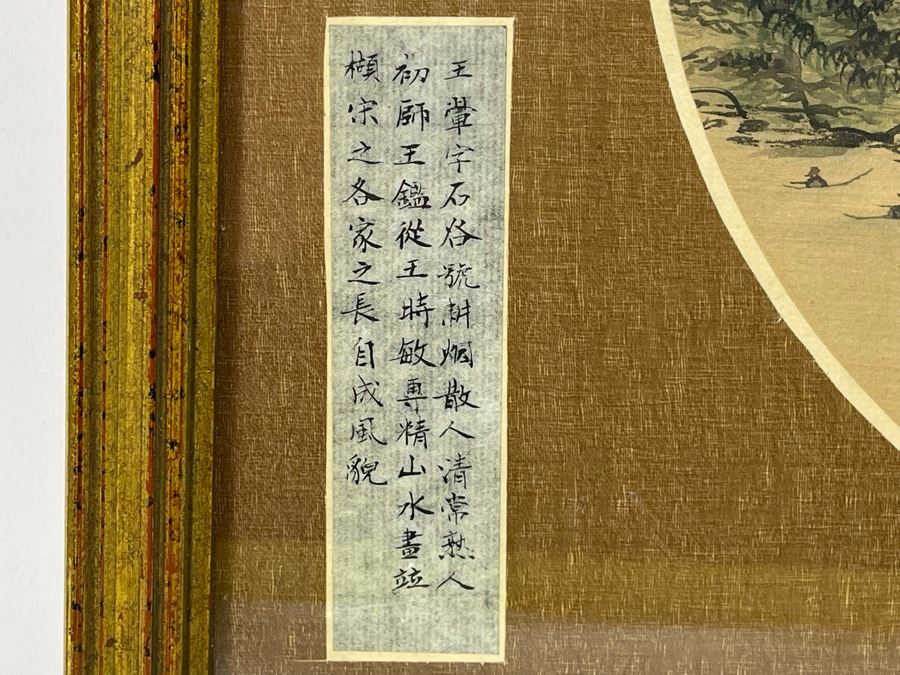 王翬字石谷號耕烟散人清常熟人
初師王鑑從王時敏專精山水畫竝
櫇宋之各家之長自成風貌